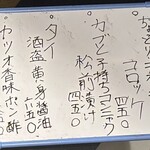 コロック
四五〇
カブと子持ちコンニャク
松前漬け
四五〇
タイ
酒盗黄身醤油
六五〇
カツオ香味ポン酢